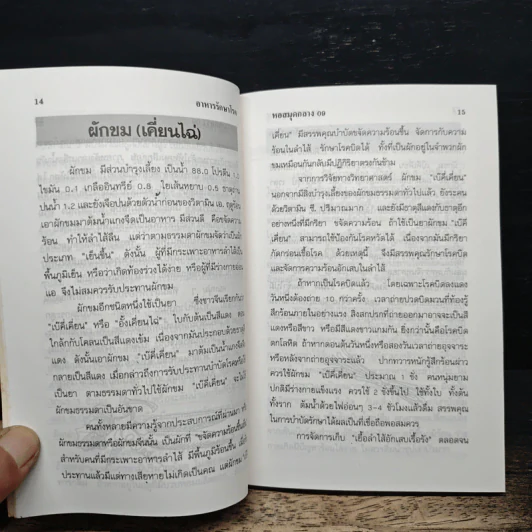 14
อาหารรักษาโรค
ผักขม (เคี่ยนไฉ่)
ผักขม มีส่วนบำรุงเลี้ยง เป็นน้ำ 88.0 โปรตีน
ไขมัน 0.1 เกลืออินทรีย์ 0.8 ใยเส้นหยาบ 0.8
ปนน้ำ 1.2 และยังเจือปนด้วยตัวนำก้อนของวิตามิน เอ.
เอาผักขมมาต้มน้ำแกงจึงเป็นอาหาร มีส่วนดี คือขจัดความ
ร้อน ทำให้ลำไส้ลื่น แต่ว่าตามธรรมดาผักขมจัดว่าเป็น
ประเภท "เย็นชื้น" ดังนั้น ผู้ที่มีกระเพาะอาหารลำไส้เป็น
พื้นภูมิเย็น หรือว่าเกิดท้องร่วงได้ง่าย หรือผู้ที่ร่างกายอ่อน
แอ จึงไม่สมควรรับประทานผักขม
ผักขมอีกชนิดหนึ่งใช้เป็นยา ซึ่งชาวจีนเรียกกันว่า
"เบ้คี่เคี่ยน" หรือ "อั้งเคี่ยนไฉ่" ใบกับต้นเป็นสีแดง
ใกล้กับโคลนเป็นสีแดงเข้ม เนื่องจากมันประกอบด้วยธาตุ
แดง ดังนั้นเอาผักขม "เบ้คี่เคี่ยน" มาต้มเป็นน้ำแกงก็
กลายเป็นสีแดง เมื่อกล่าวถึงการรับประทานบำบัดโรคหรือใช้
เป็นยา ตามธรรมดาทั่วไปใช้ผักขม "เบ้คี่เคี่ยน" จะไม่
ผักขมธรรมดาเป็นอันขาด
คนทั้งหลายมีความรู้จากประสบการณ์ที่ผ่านมา
ผักขมธรรมดาหรือผักขมจีนนั้น เป็นผักที่ "ขจัดความร้อนชื้น
สำหรับคนที่มีกระเพาะอาหารลำไส้ มีพื้นภูมิร้อนชื้น เมื่อ
ประทานแล้วมีแต่ทางเสียหายไม่เกิดเป็นคุณ แต่ผักขม
หอสมุดกลาง 09
15
เคี่ยน" มีสรรพคุณบำบัดขจัดความร้อนชื้น จัดการกับความ
ร้อนในลำไส้ รักษาโรคบิดได้ ทั้งที่เป็นผักอยู่ในจำพวกผัก
ขมเหมือนกันกลับมีปฏิกิริยาตรงกันข้าม
จากการวิจัยทางวิทยาศาสตร์ ผักขม "เบ้คี่เคี่ยน"
นอกจากมีสิ่งบำรุงเลี้ยงของผักขมธรรมดาทั่วไปแล้ว ยังระคน
ด้วยวิตามิน ซี. ปริมาณมาก และยังมีธาตุสีแดงกับธาตุอีก
อย่างหนึ่งที่มีกริยา ขจัดความร้อน ถ้าใช้เป็นยาผักขม "เบ้คี่
เคี่ยน" สามารถใช้ป้องกันโรคหวัดได้ เนื่องจากมันมีกริยา
กัดกร่อนเชื้อโรค ด้วยเหตุนี้ จึงมีสรรพคุณรักษาโรคบิด
และจัดการความร้อนอักเสบในลำไส้
ถ้าหากเป็นโรคบิดแล้ว โดยเฉพาะโรคบิดลงแดง
วันหนึ่งต้องถ่าย 10 กว่าครั้ง เวลาถ่ายปวดบิดมวนที่ท้องรู้
สึกร้อนภายในอย่างแรง สิ่งสกปรกที่ถ่ายออกมาอาจจะเป็นสี
แดงหรือสีขาว หรือมีสีแดงขาวแกมกัน ยิ่งกว่านั้นคือโรคบิด
ตกโลหิต ถ้าหากตอนต้นวันหนึ่งหรือสองวันเวลาถ่ายอุจจาระ
หรือหลังจากถ่ายอุจจาระแล้ว ปากทวารหนักรู้สึกร้อนผ่าว
ควรใช้ผักขม "เบ้คี่เคี่ยน" ประมาณ 1 ชั่ง คนหนุ่มยาม
ปกติมีร่างกายแข็งแรง ควรใช้ 2 ชั่งขึ้นไป ใช้ทั้งใบ ทั้งต้น
ทั้งราก ต้มน้ำด้วยไฟอ่อนๆ 3-4 ชั่วโมงแล้วดื่ม สรรพคุณ
ในการบำบัดรักษาได้ผลเป็นที่เชื่อถือพอสมควร
การจัดการเก็บ "เยื่อลำไส้อักเสบเรื้อรัง" ตลอดจน